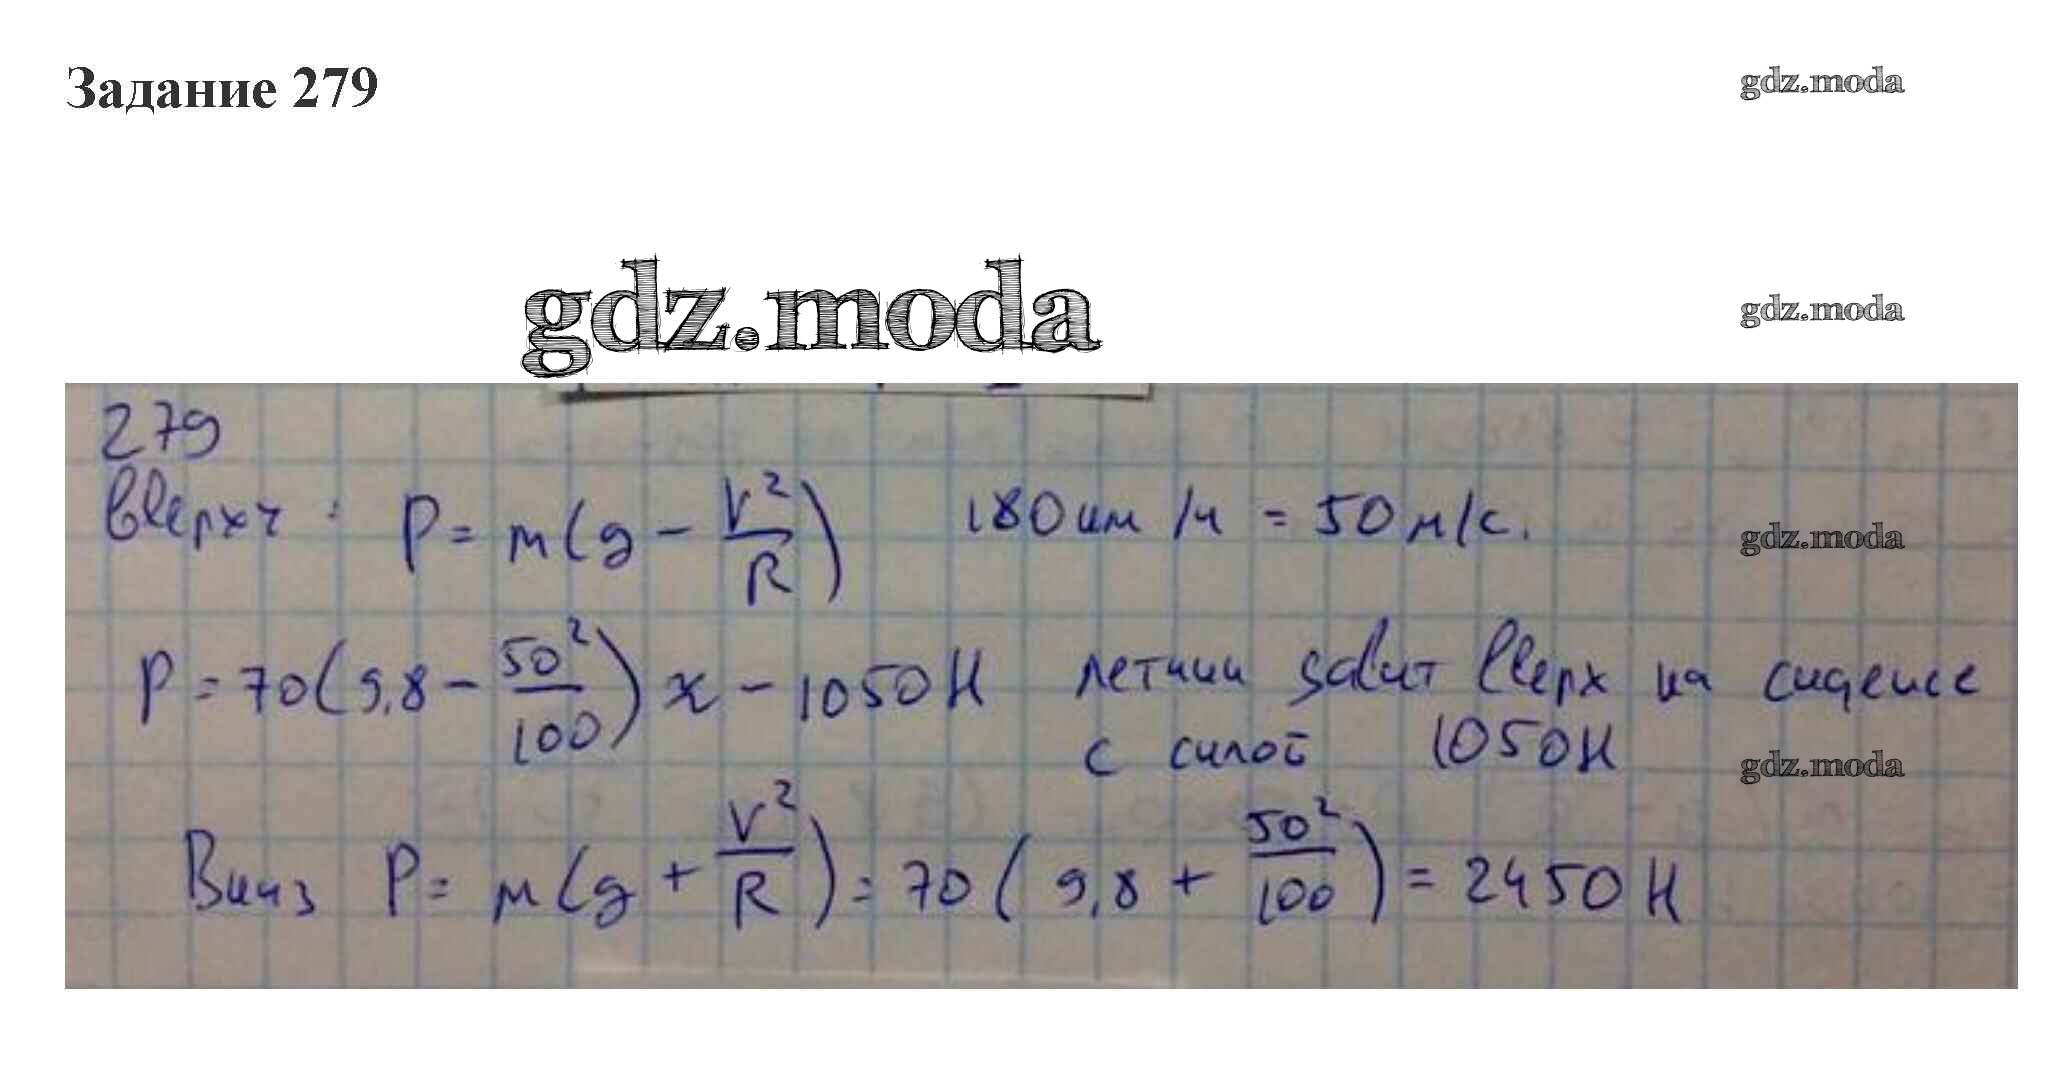 Задание 279
gdz.moda
gdz.moda
gdz.moda
279
Вверху: P = m(g - v²/R) 180 км/ч = 50 м/с.
gdz.moda
P = 70(9,8 - 50²/100) ≈ -1050 Н летчик давит вверх на сидение
с силой 1050 Н
gdz.moda
Внизу P = m(g + v²/R) = 70(9,8 + 50²/100) = 2450 Н